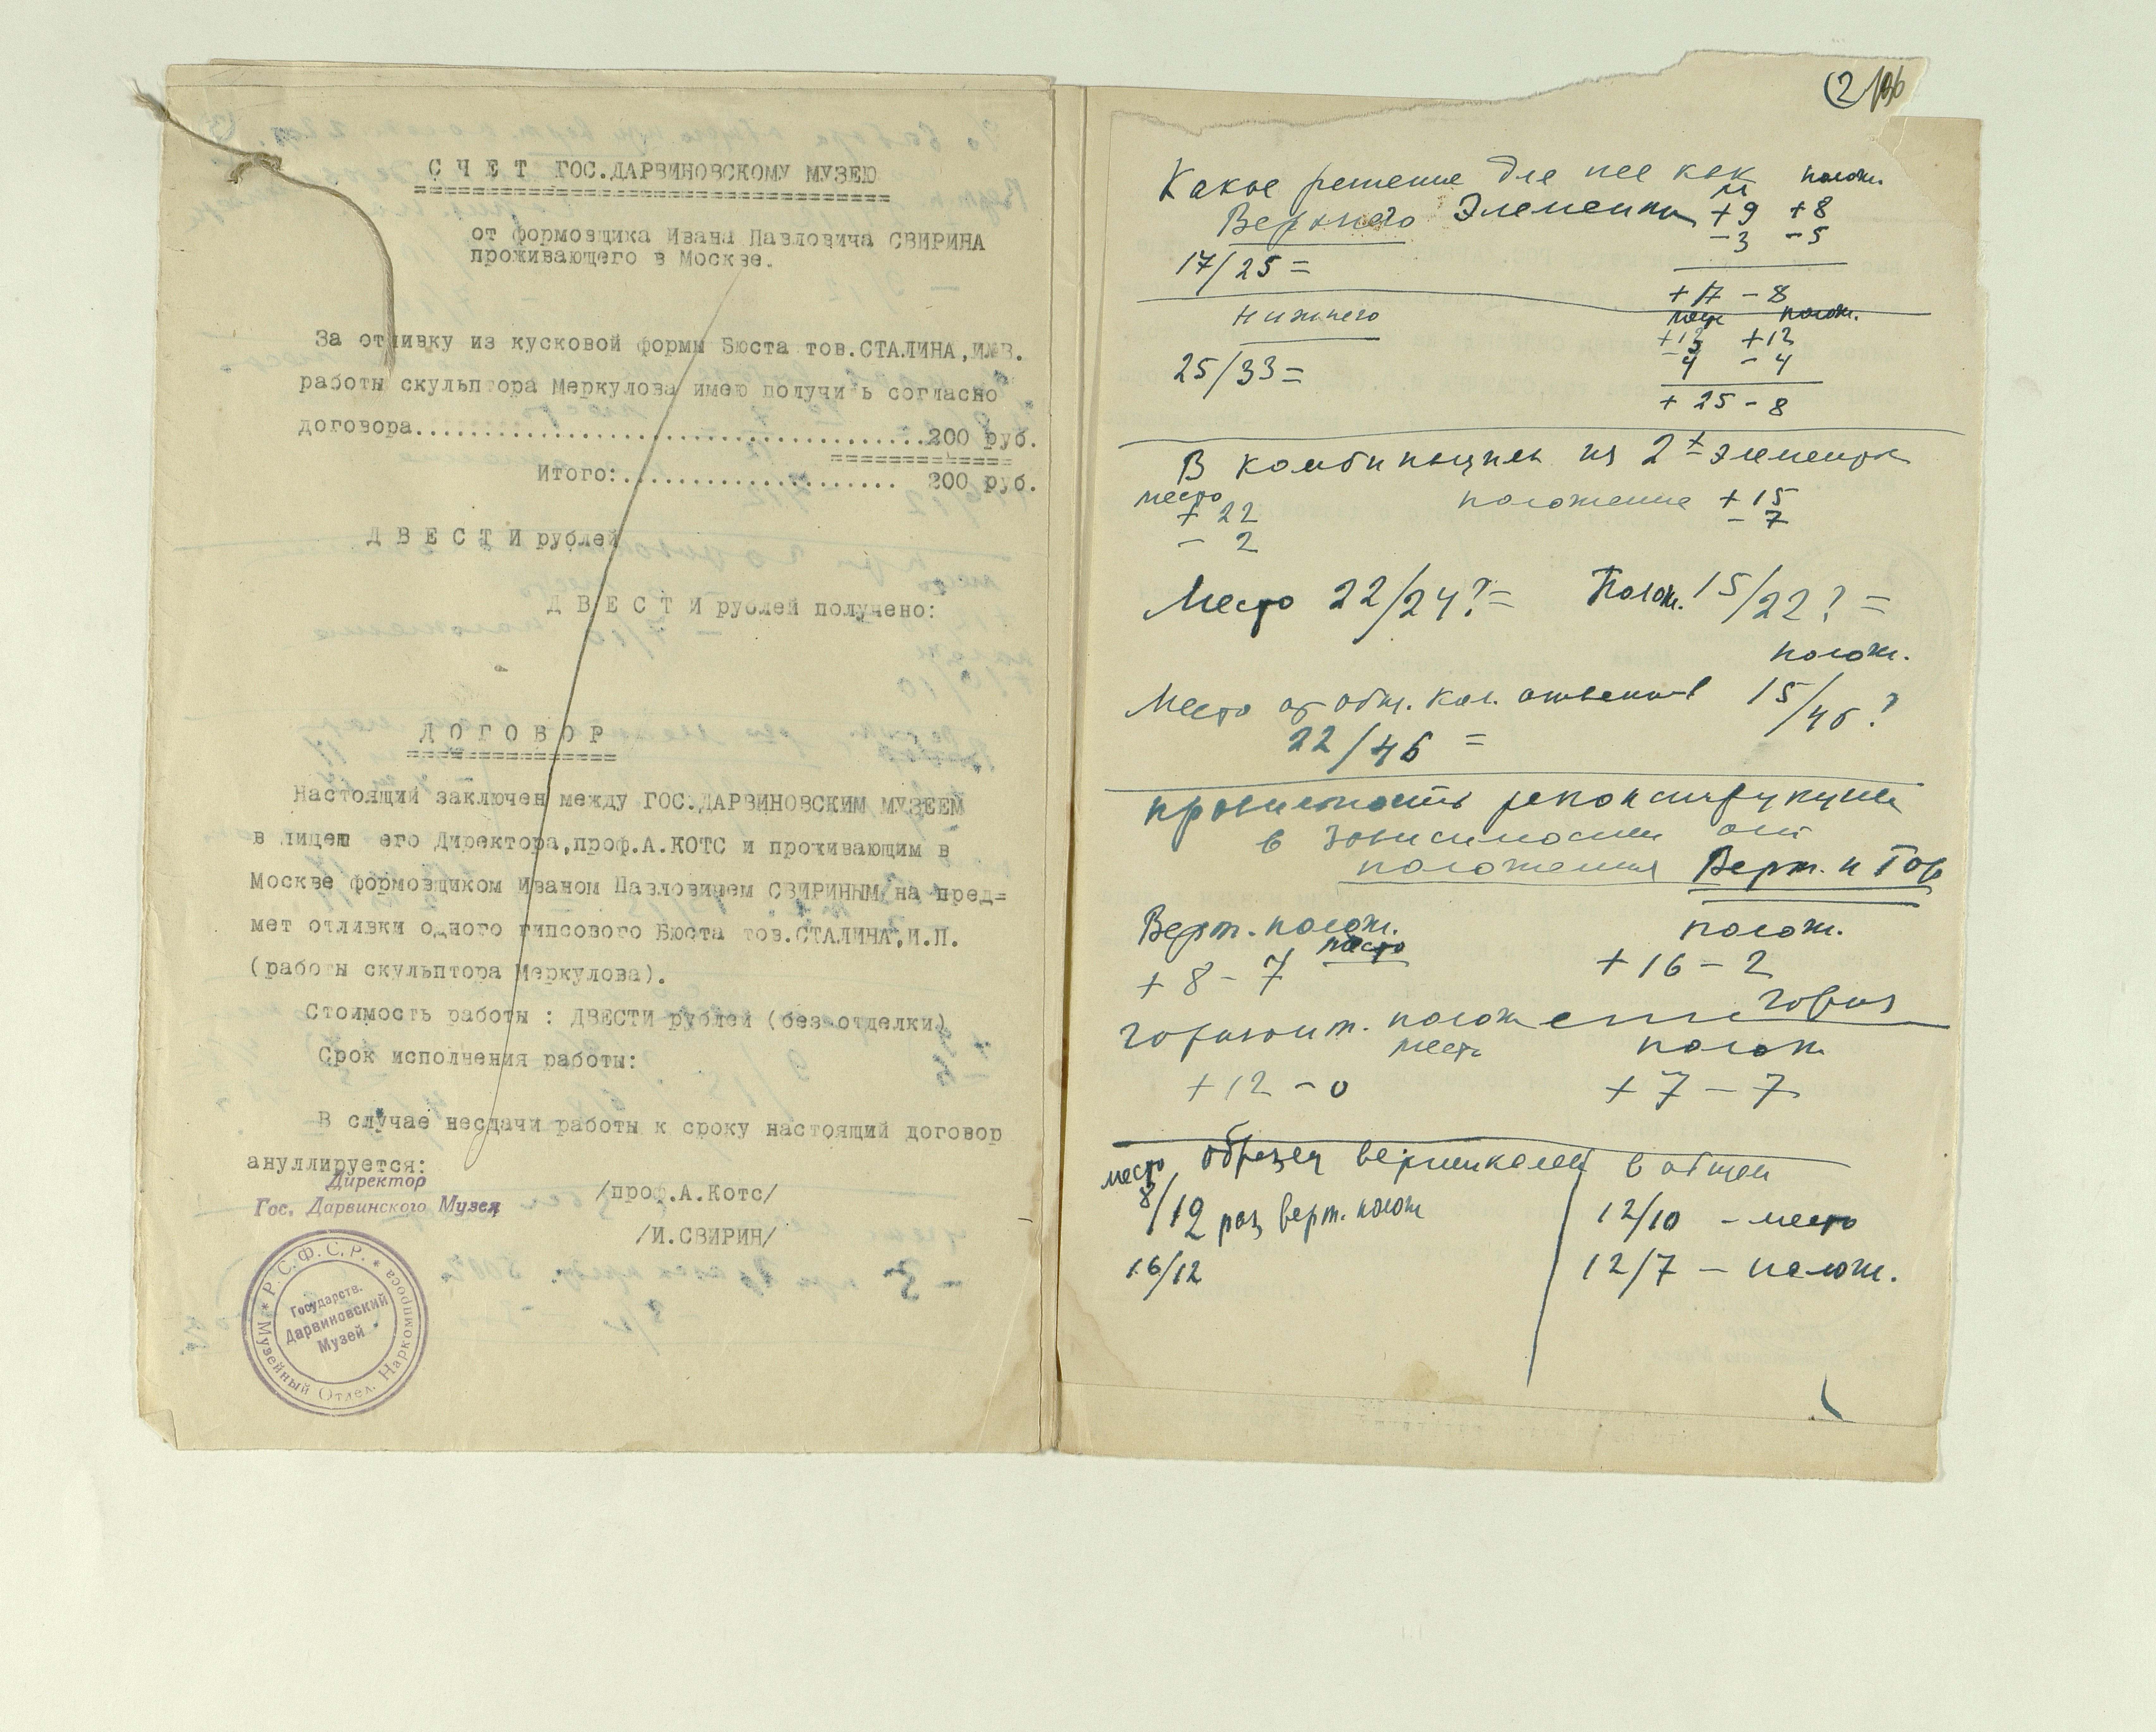 С Ч Е Т ГОС.ДАРВИНОВСКОМУ МУЗЕЮ
от формовщика Ивана Павловича СВИРИНА
проживающего в Москве.
За отливку из кусковой формы Бюста тов.СТАЛИНА,И.В.
работы скульптора Меркулова имею получи ь согласно
договора......................................200 руб.
Итого:...................... 200 руб.
Д В Е С Т И рублей
Д В Е С Т И рублей получено:
Д О Г О В О Р
Настоящий заключен между ГОС.ДАРВИНОВСКИМ МУЗЕЕМ
в лицею его Директора,проф.А.КОТС и проживающим в
Москве формовщиком Иваном Павловичем СВИРИНЫМ на пред=
мет отливки одного гипсового Бюста тов.СТАЛИНА,И.П.
(работы скульптора Меркулова).
Стоимость работы : ДВЕСТИ рублей (без отделки)
Срок исполнения работы:
В случае несдачи работы к сроку настоящий договор
ануллируется:
Директор
Гос. Дарвинского Музея
/проф.А.Котс/
/И.СВИРИН/
* Р.С.Ф.С.Р. * Музейный Отдел. Наркомпроса
Государств.
Дарвиновский
Музей
(2
Какое решение для нее как полож.
Верхнего Элемента +9 +8
-3 -5
17/25 =
+17 - 8
Нижнего полож.
+13 +12
-4 -4
25/33 =
+ 25 - 8
В комбинации из 2х элементов
место
+ 22 положение + 15
- 2 - 7
Место 22/24? = Полож. 15/22? =
полож.
Место от общ. кол. ответов 15/46?
22/46 =
реконструкции
в зависимости от
положения Верт. и Гор
Верт. полож. место полож.
+ 8 - 7 + 16 - 2
Горизонт. положение Гориз
место полож
+ 12 - 0 + 7 - 7
место образец вертикален в общем
8/12 раз верт. полож 12/10 - место
16/12 12/7 - полож.